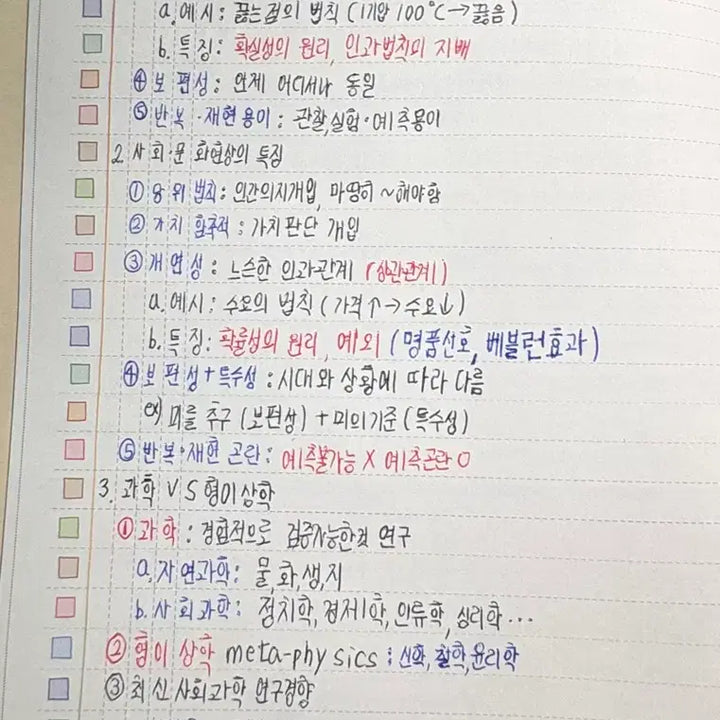 a. 예시: 끓는점의 법칙 (1기압 100℃→끓음)
b. 특징: 확실성의 원리, 인과법칙의 지배
④ 보편성: 언제 어디서나 동일
⑤ 반복·재현 용이: 관찰, 실험·예측용이
2. 사회·문화현상의 특징
① 당위법칙: 인간의지개입, 마땅히 ~해야함
② 가치 함축적: 가치판단 개입
③ 개연성: 느슨한 인과관계 (상관관계)
a. 예시: 수요의 법칙 (가격↑→수요↓)
b. 특징: 확률성의 원리, 예외 (명품선호, 베블런효과)
④ 보편성+특수성: 시대와 상황에 따라 다름
ex) 미를 추구 (보편성) + 미의기준 (특수성)
⑤ 반복·재현 곤란: 예측불가능 X 예측곤란 O
3. 과학 VS 형이상학
① 과학: 경험적으로 검증가능한것 연구
a. 자연과학: 물,화,생,지
b. 사회과학: 정치학, 경제학, 인류학, 심리학...
② 형이상학 meta-physics: 신학, 철학, 윤리학
③ 최신사회과학 연구경향